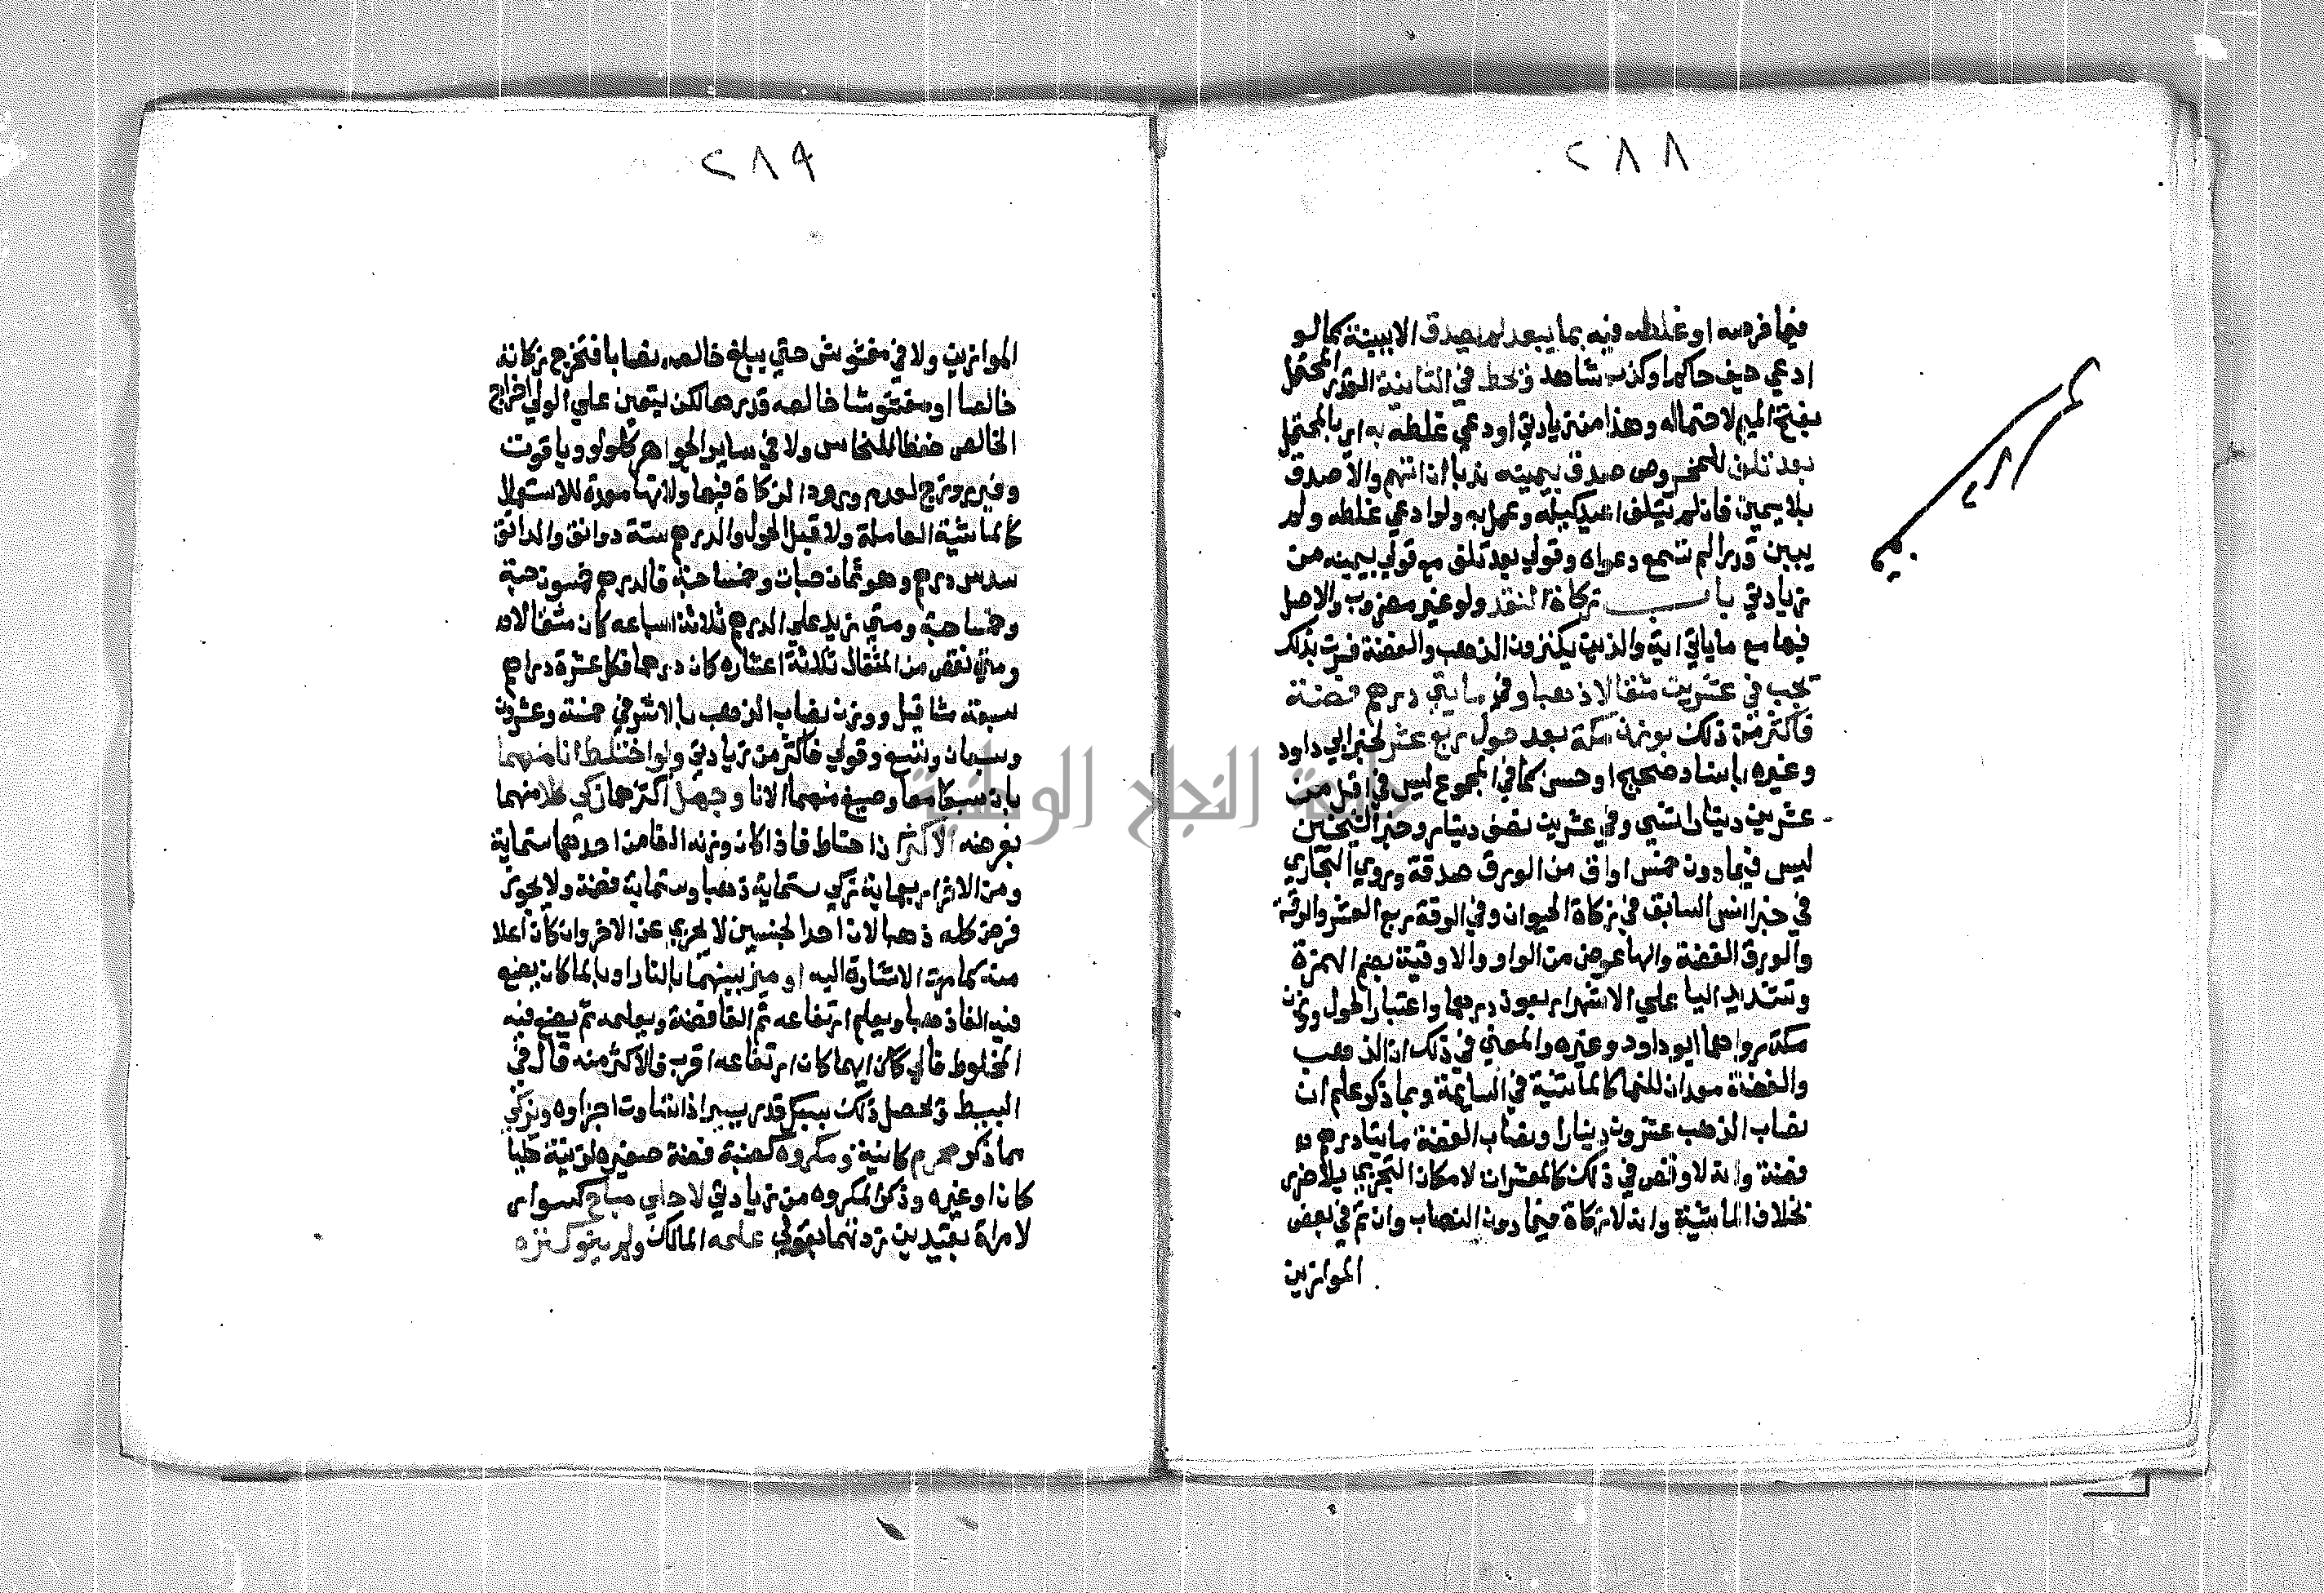 ٢٨٨
فيما خرصه او غلطه فيه بما يبعد لم يصدق الا ببينة كما لو
ادعي حيف حاكم او كذب شاهد وتحط في الثانية القدر المحتمل
بفتح الميم لاحتماله وهذا من زيادتي او ادعي غلطه به اي بالمحتمل
بعد تلف المخروص صدق بيمينه ندبا ان اتهم والا صدق
بلا يمين فان لم يتلف اعيد كيله وعمل به ولو ادعي غلطه ولم
يبين قدرا لم تسمع دعواه وقولي بعد تلف مع قولي بيمينه من
زيادتي باب زكاة النقد ولو غير مضروب والاصل
فيها مع ما ياتي اية والذين يكنزون الذهب والفضة فسرت بذلك
تجب في عشرين مثقالا ذهبا وفي مايتي درهم فضة
فاكثر من ذلك بوزن مكة بعد حول ربع عشر لخبر ابي داود
وغيره باسناد صحيح او حسن كما في المجموع ليس في اقل من
عشرين دينارا شي وفي عشرين نصف دينار وخبر الشيخين
ليس فيما دون خمس اواق من الورق صدقة وروي البخاري
في خبر انس السابق في زكاة الحيوان وفي الرقة ربع العشر والرقة
والورق الفضة والها عوض من الواو والاوقية بضم الهمزة
وتشديد اليا علي الاشهر اربعون درهما واعتبار الحول ووزن
مكة رواهما ابو داود وغيره والمعني في ذلك ان الذهب
والفضة معدان للنما كالماشية في السايمة وبما ذكر علم ان
نصاب الذهب عشرون دينارا ونصاب الفضة مايتا درهم
فضة وانه لا وقص في ذلك كالمعشرات لامكان التجزي بلا ضرر
بخلاف الماشية وانه لا زكاة فيما دون النصاب وان تم في بعض
الموازين
٢٨٩
الموازين ولا في مغشوش حتي يبلغ خالصه نصابا فتخرج زكاته
خالصا او مغشوشا خالصه قدرها لكن يتعين علي الولي اخراج
الخالص حفظا للنحاس ولا في ساير الجواهر كلولو وياقوت
وفيروزج لعدم ورود الزكاة فيها ولانها معدة للاستعمال
كالماشية العاملة ولا قبل الحول والدرهم ستة دوانق والدانق
سدس درهم وهو ثمان حبات وخمسا حبة فالدرهم خمسون حبة
وخمسا حبة ومتي زيد علي الدرهم ثلاثة اسباعه كان مثقالا
ومتي نقص من المثقال ثلاثة اعشاره كان درهما فكل عشرة دراهم
سبعة مثاقيل ووزن نصاب الذهب بالاشرفي خمسة وعشرون
وسبعان وتسع وقولي فاكثر من زيادتي ولو اختلط انا منهما
بان سبكا معا وصيغ منهما الانا وجهل اكثرهما زكي كلا منهما
بفرضه الاكثر ان احتاط فاذا كان وزنه الفا من احدهما ستماية
ومن الاخر اربعماية زكي ستماية ذهبا وستماية فضة ولا يجوز
فرض كله ذهبا لان احد الجنسين لا يجزي عن الاخر وان كان اعلا
منه كما مرت الاشارة اليه او ميز بينهما بالنار او بالما كان يضع
فيه الفا ذهبا ويعلم ارتفاعه ثم الفا فضة ويعلمه ثم يضع فيه
المخلوط فالي كان ايهما كان ارتفاعه اقرب فالاكثر منه قال في
البسيط ويحصل ذلك بسبك قدر يسير اذا تساوت اجزاوه ويزكي
مما ذكر محرم كانية ومكروه كضبة فضة صغيره لزينة حليا
كان او غيره وذكر المكروه من زيادتي لا حلي مباح كسوار
لامراة بقيدين زدتهما بقولي علمه المالك ولم ينو كنزه
جامعة النجاح الوطنية